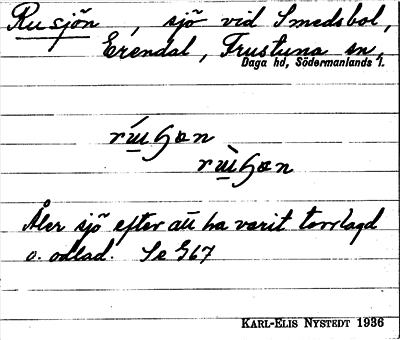 Rusjön, sjö vid Smedsbol,
Erendal, Frustuna sn,
Daga hd, Södermanlands l.
Åter sjö efter att ha varit torrlagd
o. odlad. Se G67
KARL-ELIS NYSTEDT 1936